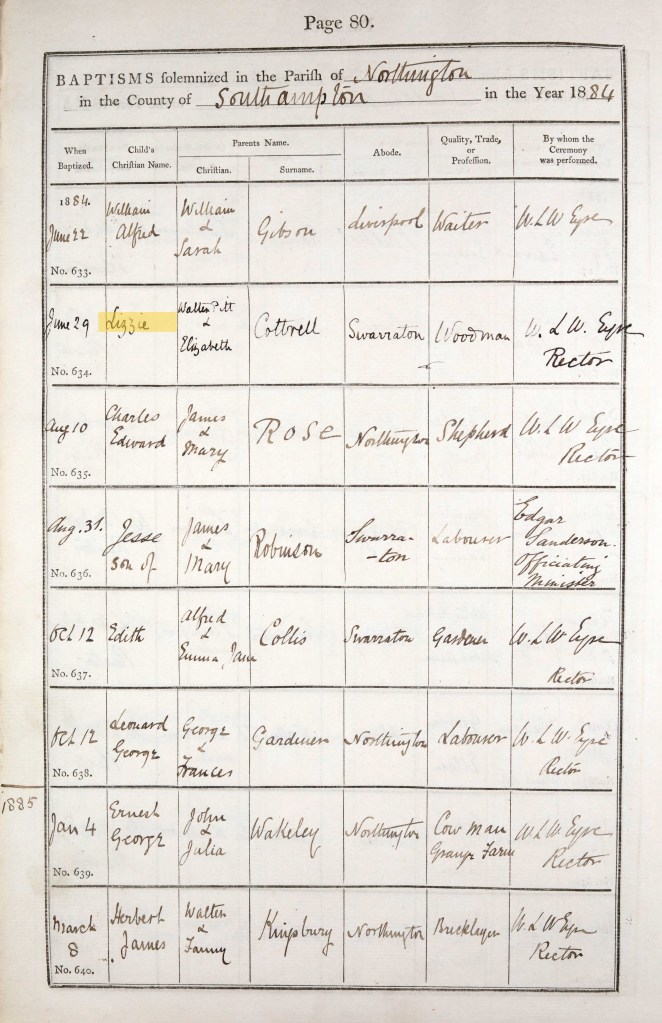 Page 80.
BAPTISMS solemnized in the Parish of Northington
in the County of Southampton in the Year 1884
When Baptized.
Child's Christian Name.
Parents Name.
Christian.
Surname.
Abode.
Quality, Trade, or Profession.
By whom the Ceremony was performed.
1884.
June 22
No. 633.
William
Alfred
William
&
Sarah
Gibson
Liverpool
Waiter
W. L W Eyre
June 29
No. 634.
Lizzie
Walter Pitt
&
Elizabeth
Cottrell
Swarraton
Woodman
W. L W. Eyre
Rector
Aug 10
No. 635.
Charles
Edward
James
&
Mary
Rose
Northington
Shepherd
W. L W Eyre
Rector
Aug. 31.
No. 636.
Jesse
son of
James
&
Mary
Robinson
Swarra-
-ton
Labourer
Edgar
Sanderson.
Officiating
Minister
Oct 12
No. 637.
Edith
Alfred
&
Emma Jane
Collis
Swarraton
Gardener
W. L W Eyre
Rector
Oct 12
No. 638.
Leonard
George
George
&
Frances
Gardener
Northington
Labourer
W L W Eyre
Rector
1885
Jan 4
No. 639.
Ernest
George
John
&
Julia
Wakeley
Northington
Cow man
Grange Farm
W L W Eyre
Rector
March
8
No. 640.
Herbert
James
Walter
&
Fanny
Kingsbury
Northington
Bricklayer
W L W Eyre
Rector